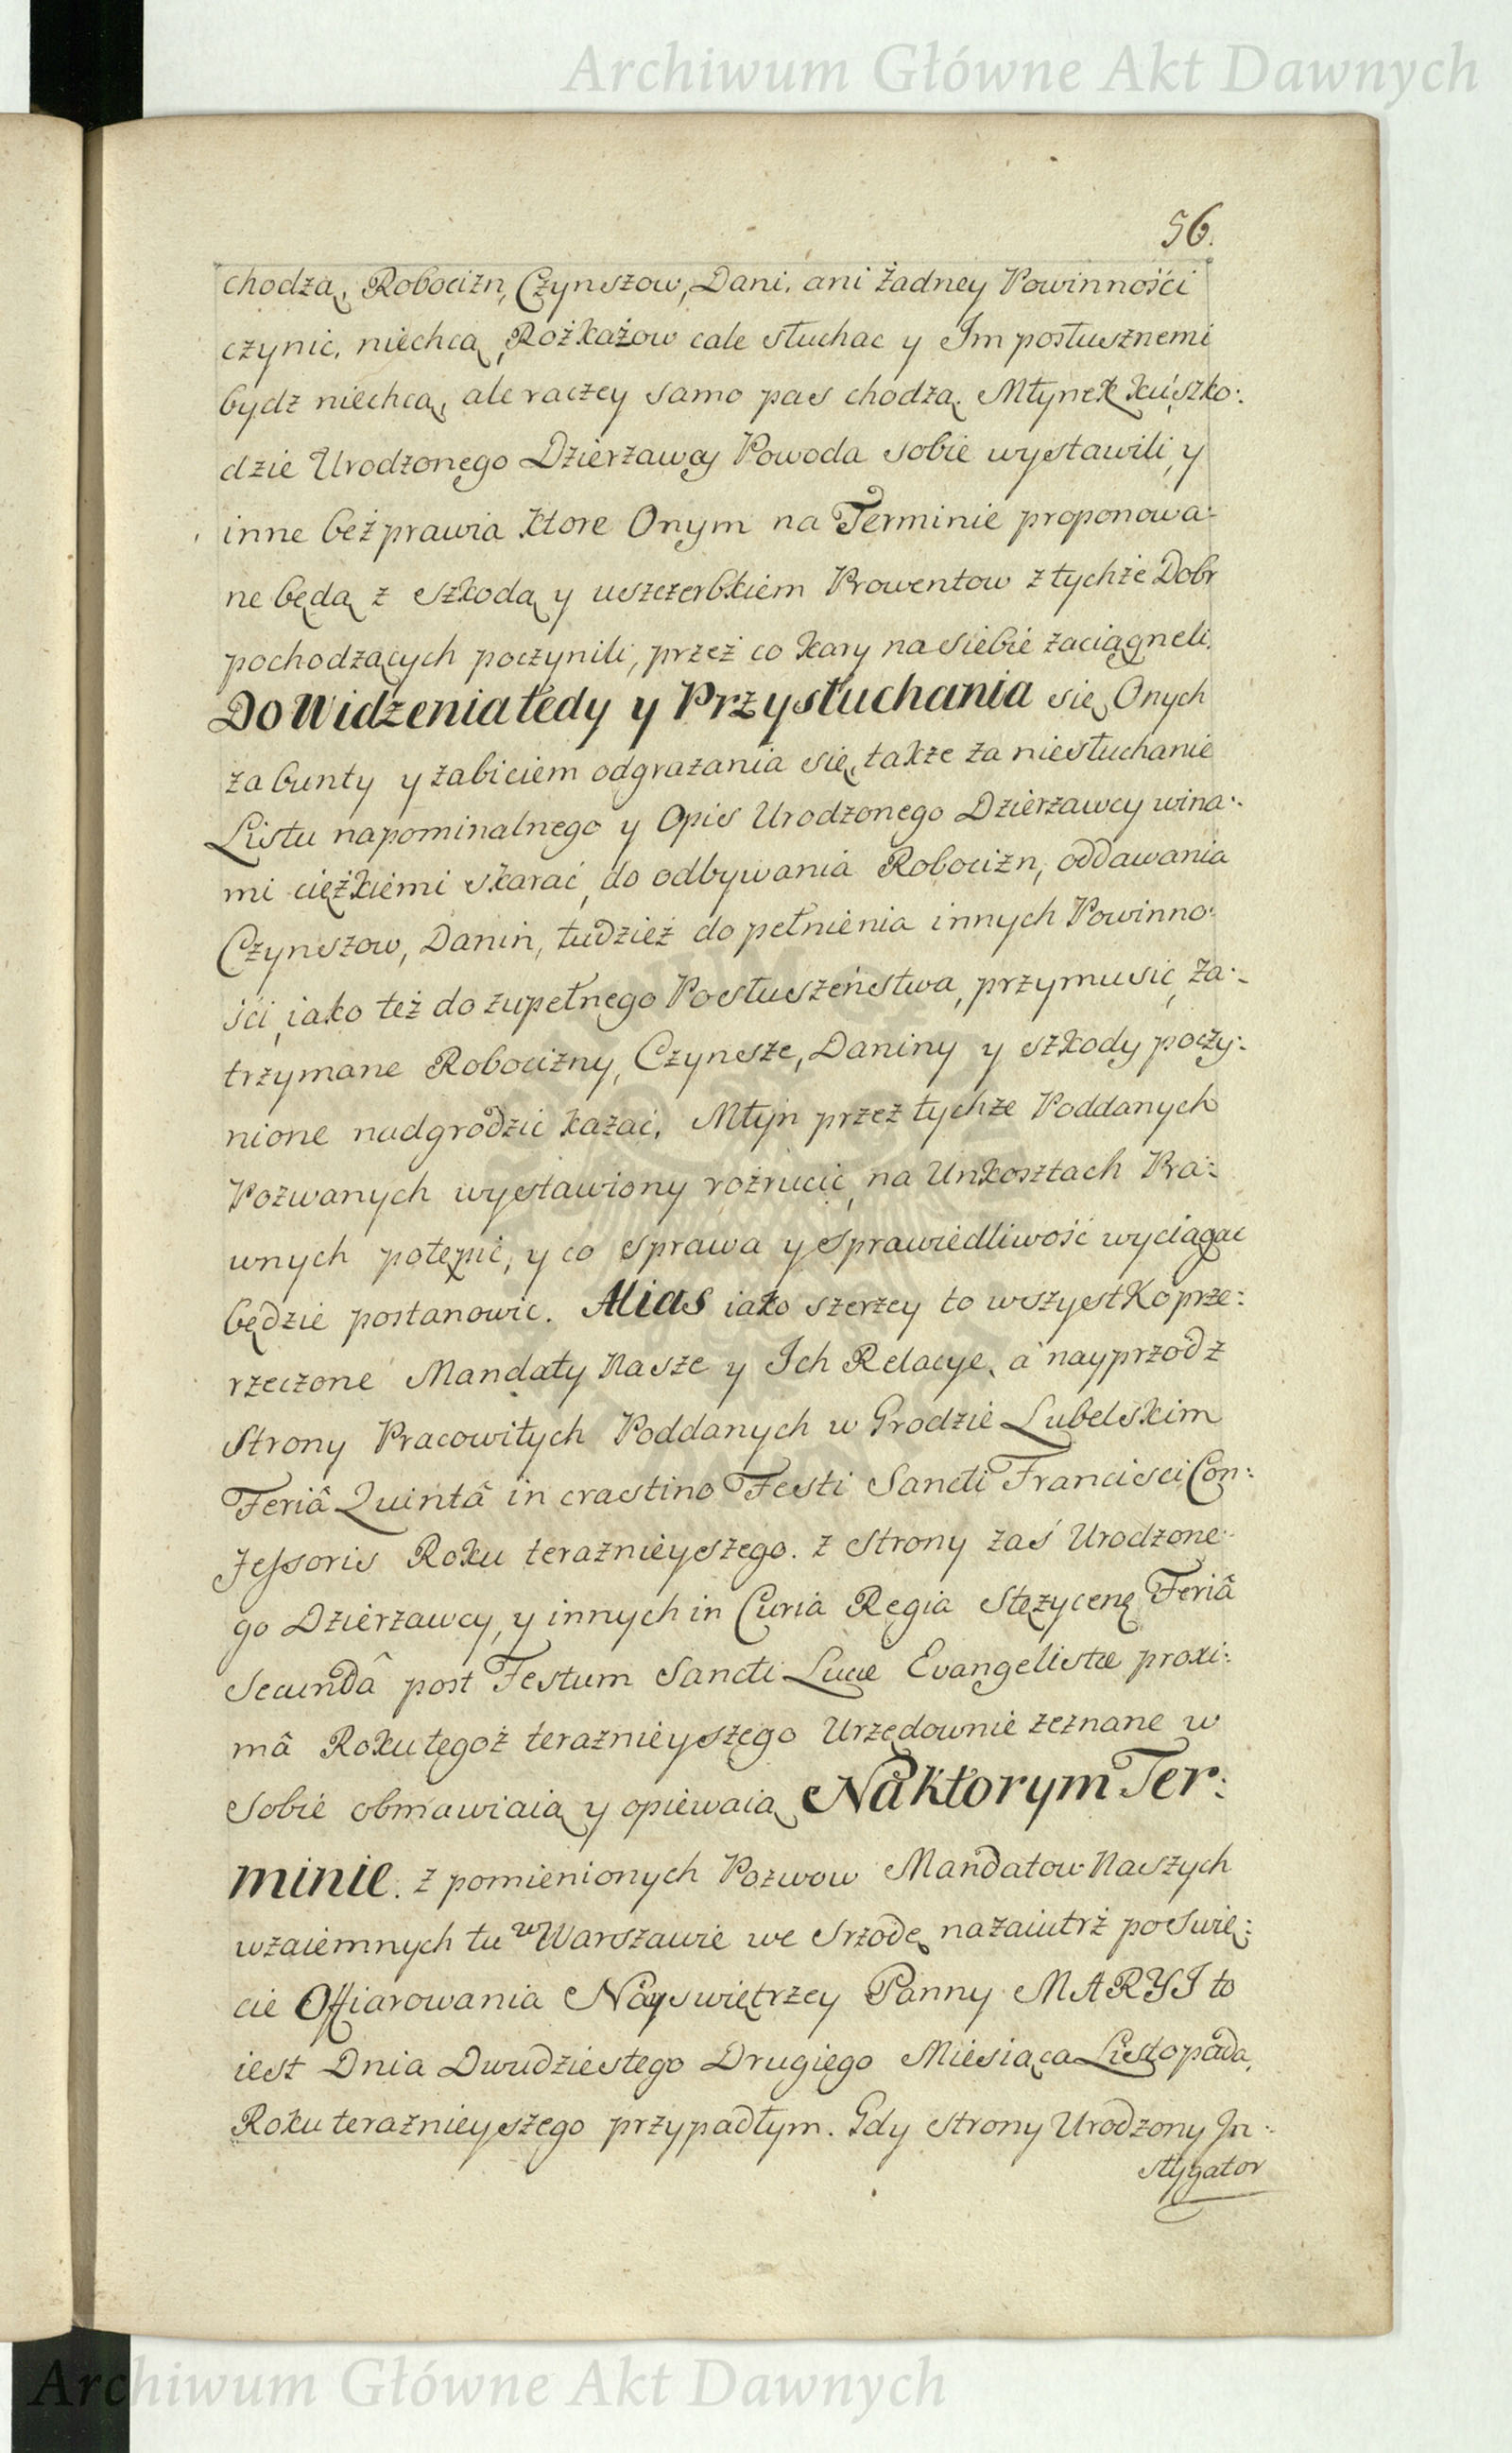 Archiwum Główne Akt Dawnych
56.
chodzą, Robocizn, Czynszow, Dani, ani żadney Powinnośći
czynic, niechcą, Rożkażow cale słuchac y Im posłusznemi
bydz niechcą, ale raczey samo pas chodzą. Młynek ku szko:
dzie Urodzonego Dzierżawcy Powoda sobie wystawili, y
inne beżprawia ktore Onym na Terminie proponowa:
ne będą z szkodą y uszczerbkiem Prowentow z tychże Dobr
pochodzących poczynili, przez co kary na siebie zaciągneli.
Do Widzenia tedy y Przysłuchania się, Onych
za bunty y zabiciem odgrazania się, także za niesłuchanie
Listu napominalnego y Opis Urodzonego Dzierzawcy wina:
mi ciężkiemi skarać, do odbywania Robocizn, oddawania
Czynszow, Danin, tudzież do pełnienia innych Powinno:
śći, iako też do zupełnego Posłuszeństwa, przymusić, Za:
trzymane Robocizny, Czynsze, Daniny y szkody poczy:
nione nadgrodzic kazać, Młyn przez tychże Poddanych
Pozwanych wystawiony rozrucić, na Unkosztach Pra:
wnych potępić, y co sprawa y sprawiedliwość wyciągac
będzie postanowic. Alias iako szerzey to wszystko prze:
rzeczone Mandaty Nasze y Ich Relacye, a nayprzod z
Strony Pracowitych Poddanych w Grodzie Lubelskim
Feriâ Quintâ in crastino Festi Sancti Francisci Con:
fessoris Roku teraznieyszego. z strony zaś Urodzone:
go Dzierzawcy, y innych in Curia Regia Stęzycenę Feriâ
Secundâ post Festum Sancti Lucæ Evangelistæ proxi:
mâ Roku tegoż teraznieyszego Urzędownie zeznane w
sobie obmawiaią y opiewaią Na ktorym Ter:
minie. z pomienionych Pozwow Mandatow Naszych
wzaiemnych tu w Warszawie we Srzodę nazaiutrz po Swię:
cie Offiarowania Nayswiętrzey Panny MARYI to
iest Dnia Dwudziestego Drugiego Miesiąca Listopada,
Roku teraznieyszego przypadłym. Gdy strony Urodzony In:
stygator
Archiwum Główne Akt Dawnych